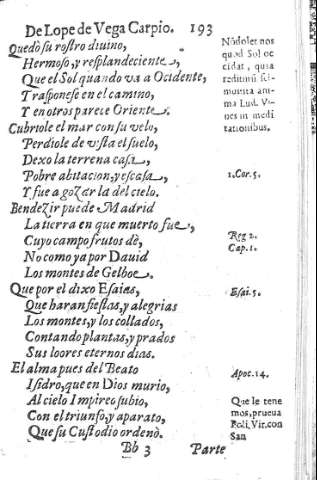 De Lope de Vega Carpio. 193
Quedò su rostro diuino,
Hermoso, y resplandeciente,
Que el Sol quando va a Ocidente,
Trasponese en el camino,
Y en otros parece Oriente.
Cubriole el mar con su velo,
Perdiole de vista el suelo,
Dexo la terrena casa,
Pobre abitacion, y escasa,
Y fue a gozar la del cielo.
Bendezir puede Madrid
La tierra en que muerto fue,
Cuyo campo frutos dè,
No como ya por Dauid
Los montes de Gelboe.
Que por el dixo Esaias,
Que haran fiestas, y alegrias
Los montes, y los collados,
Contando plantas, y prados
Sus loores eternos dias.
El alma pues del Beato
Isidro, que en Dios murio,
Al cielo Impireo subio,
Con el triunfo, y aparato,
Que su Custodio ordenò.
Bb 3 Parte
Nũ dolet nos
quod Sol oc
cidat, quia
reditum
ma Lud. Vi-
nes in medi
tationibus.
1.Cor. 5.
Reg 2.
Cap. 1.
Esai. 5.
Apoc. 14.
Que le tene
mos, prueua
Poli. Vir. con
San